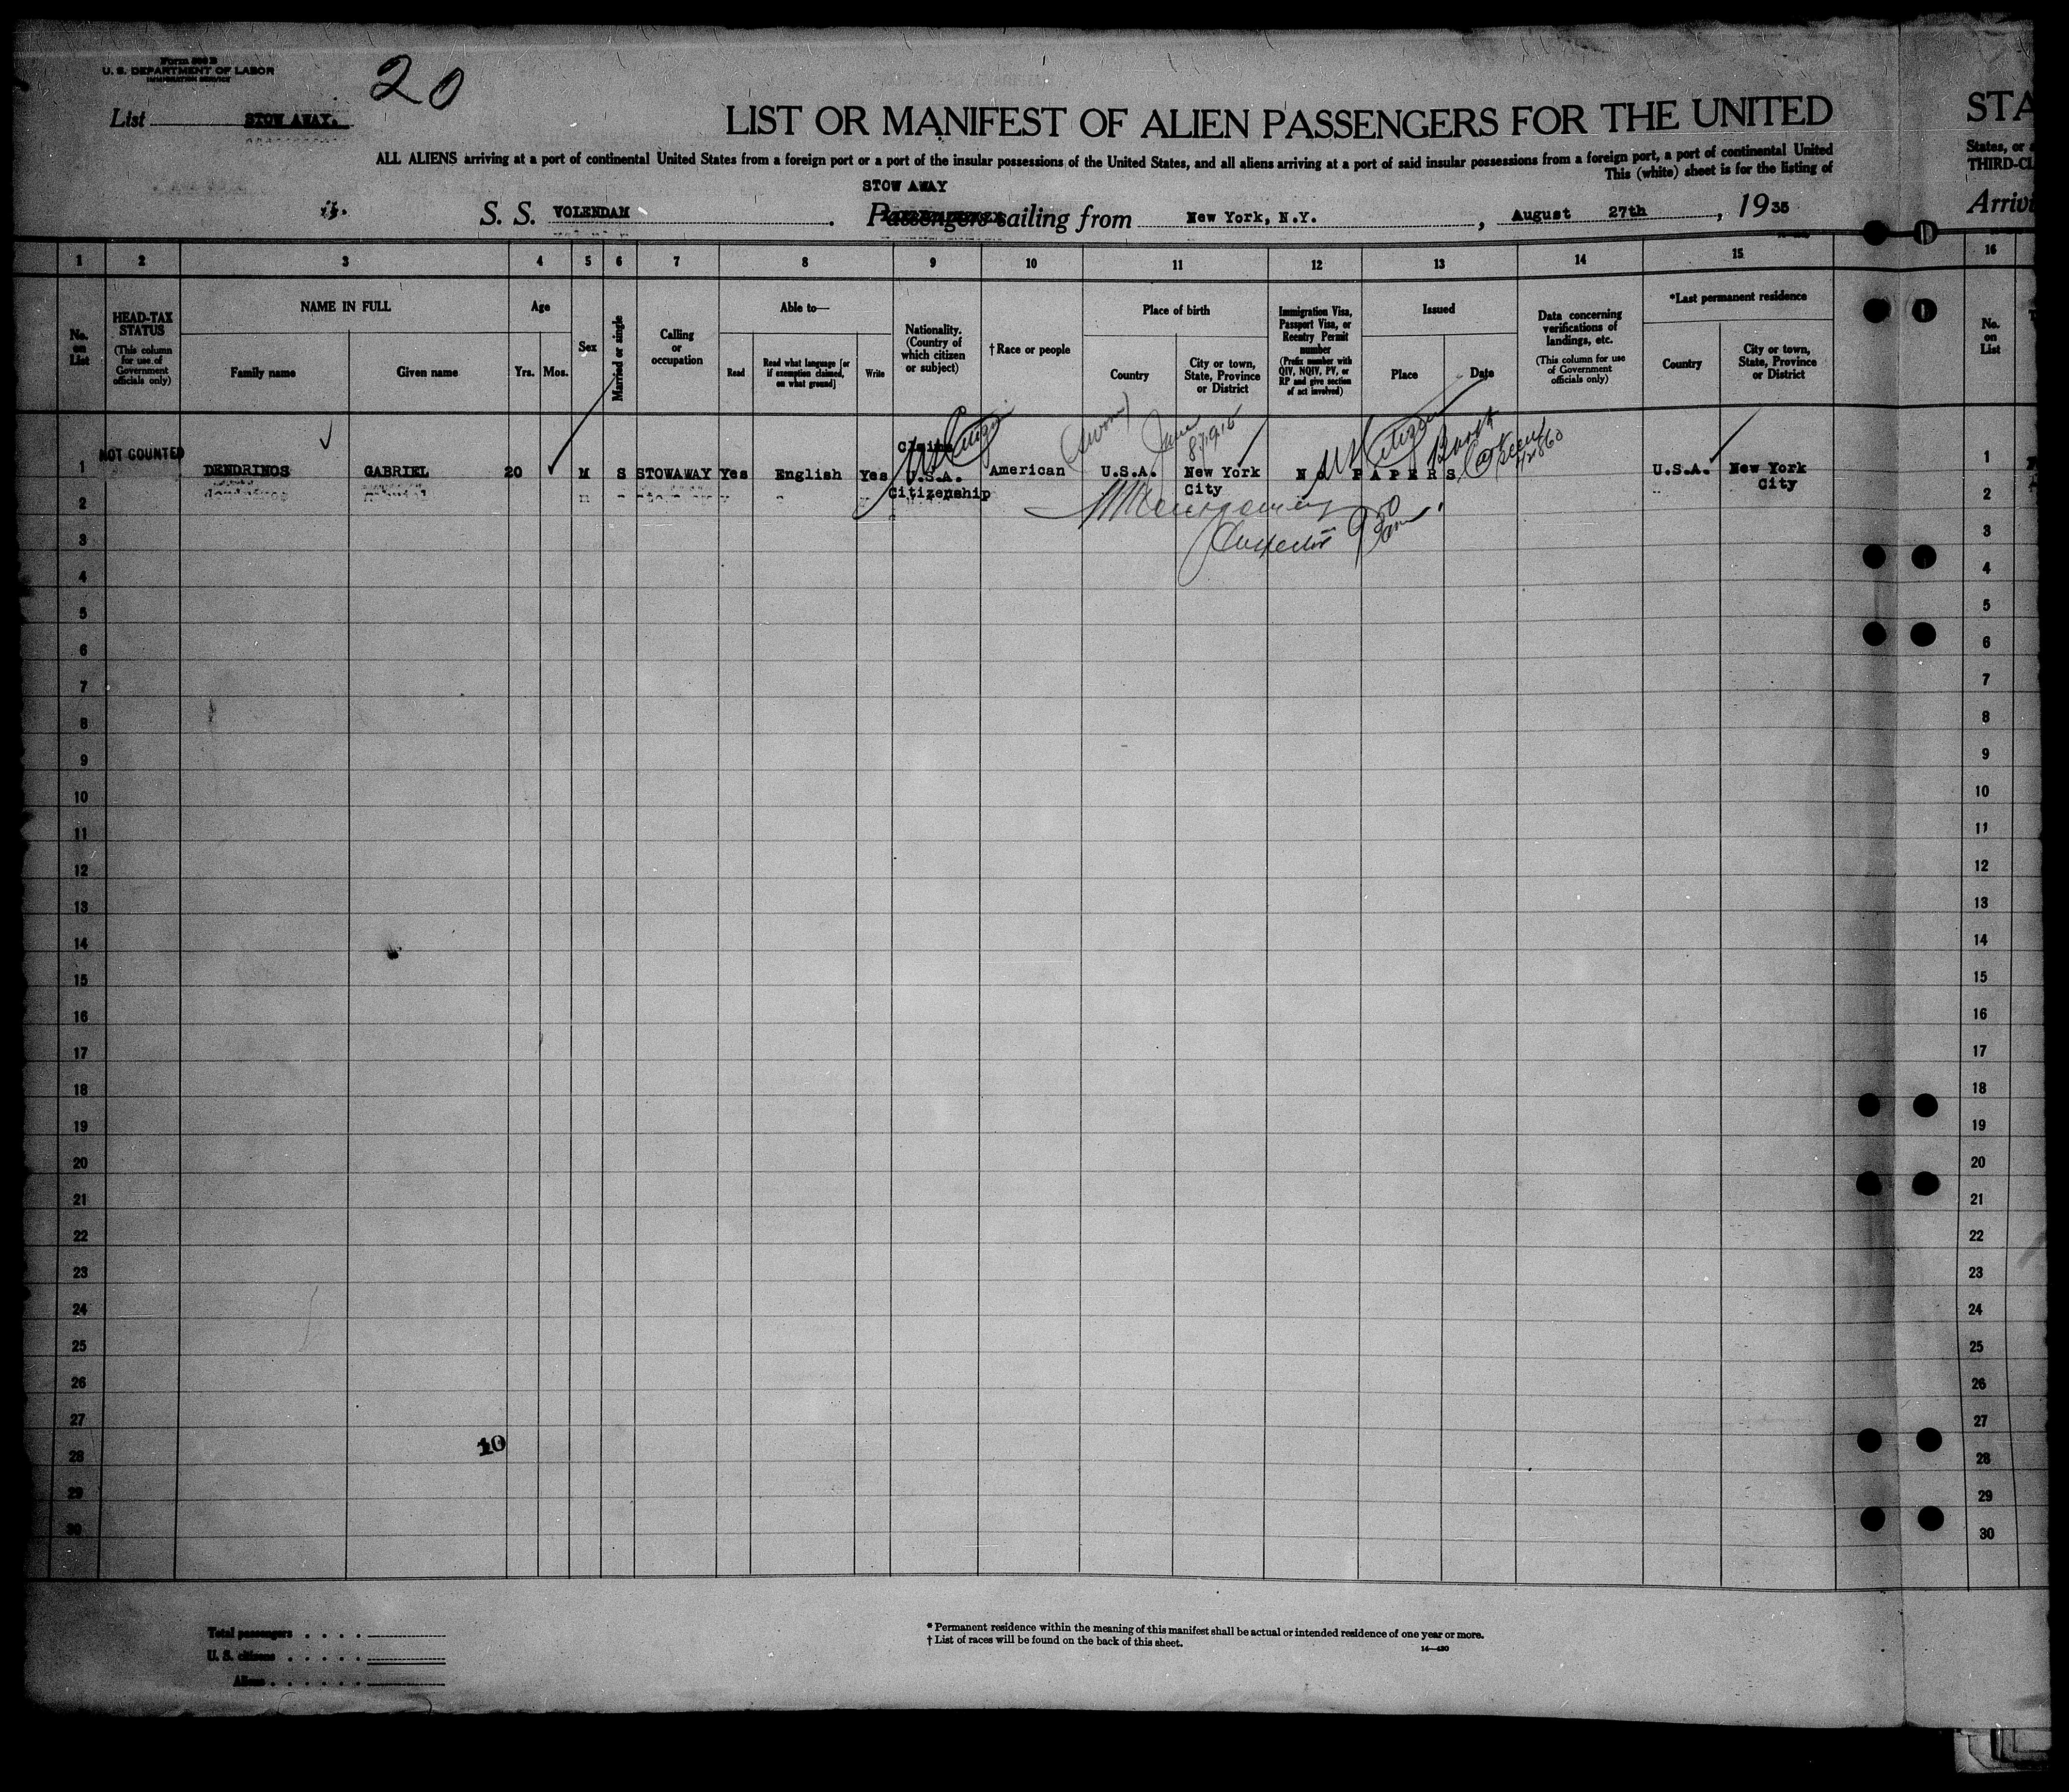 Form 500 B
U. S. DEPARTMENT OF LABOR
IMMIGRATION SERVICE
20
List STOW AWAY.
LIST OR MANIFEST OF ALIEN PASSENGERS FOR THE UNITED
STA
ALL ALIENS arriving at a port of continental United States from a foreign port or a port of the insular possessions of the United States, and all aliens arriving at a port of said insular possessions from a foreign port, a port of continental United
States, or a
This (white) sheet is for the listing of
THIRD-CL
STOW AWAY
S. S. VOLENDAM. Passengers sailing from New York, N.Y., August 27th, 1935
Arrivi
1 2 3 4 5 6 7 8 9 10 11 12 13 14 15 16
No. on List
HEAD-TAX STATUS
(This column for use of Government officials only)
NAME IN FULL
Family name
Given name
Age
Yrs. Mos.
Sex
Married or single
Calling or occupation
Able to—
Read
Read what language [or if exemption claimed, on what ground]
Write
Nationality. (Country of which citizen or subject)
†Race or people
Place of birth
Country
City or town, State, Province or District
Immigration Visa, Passport Visa, or Reentry Permit number
(Prefix number with QIV, NQIV, PV, or RP and give section of act involved)
Issued
Place
Date
Data concerning verifications of landings, etc.
(This column for use of Government officials only)
*Last permanent residence
Country
City or town, State, Province or District
No. on List
NOT COUNTED
1 DENDRINOS GABRIEL 20 M S STOWAWAY Yes English Yes Claims U.S.A. Citizenship American U.S.A. New York City NO PAPERS U.S.A. New York City 1
US Citizen
(Sworn)
June 8, 1915
US Citizen
Inspector
2 2
3 3
4 4
5 5
6 6
7 7
8 8
9 9
10 10
11 11
12 12
13 13
14 14
15 15
16 16
17 17
18 18
19 19
20 20
21 21
22 22
23 23
24 24
25 25
26 26
27 27
10
28 28
29 29
30 30
Total passengers
U. S. citizens
Aliens
* Permanent residence within the meaning of this manifest shall be actual or intended residence of one year or more.
† List of races will be found on the back of this sheet.
14—430